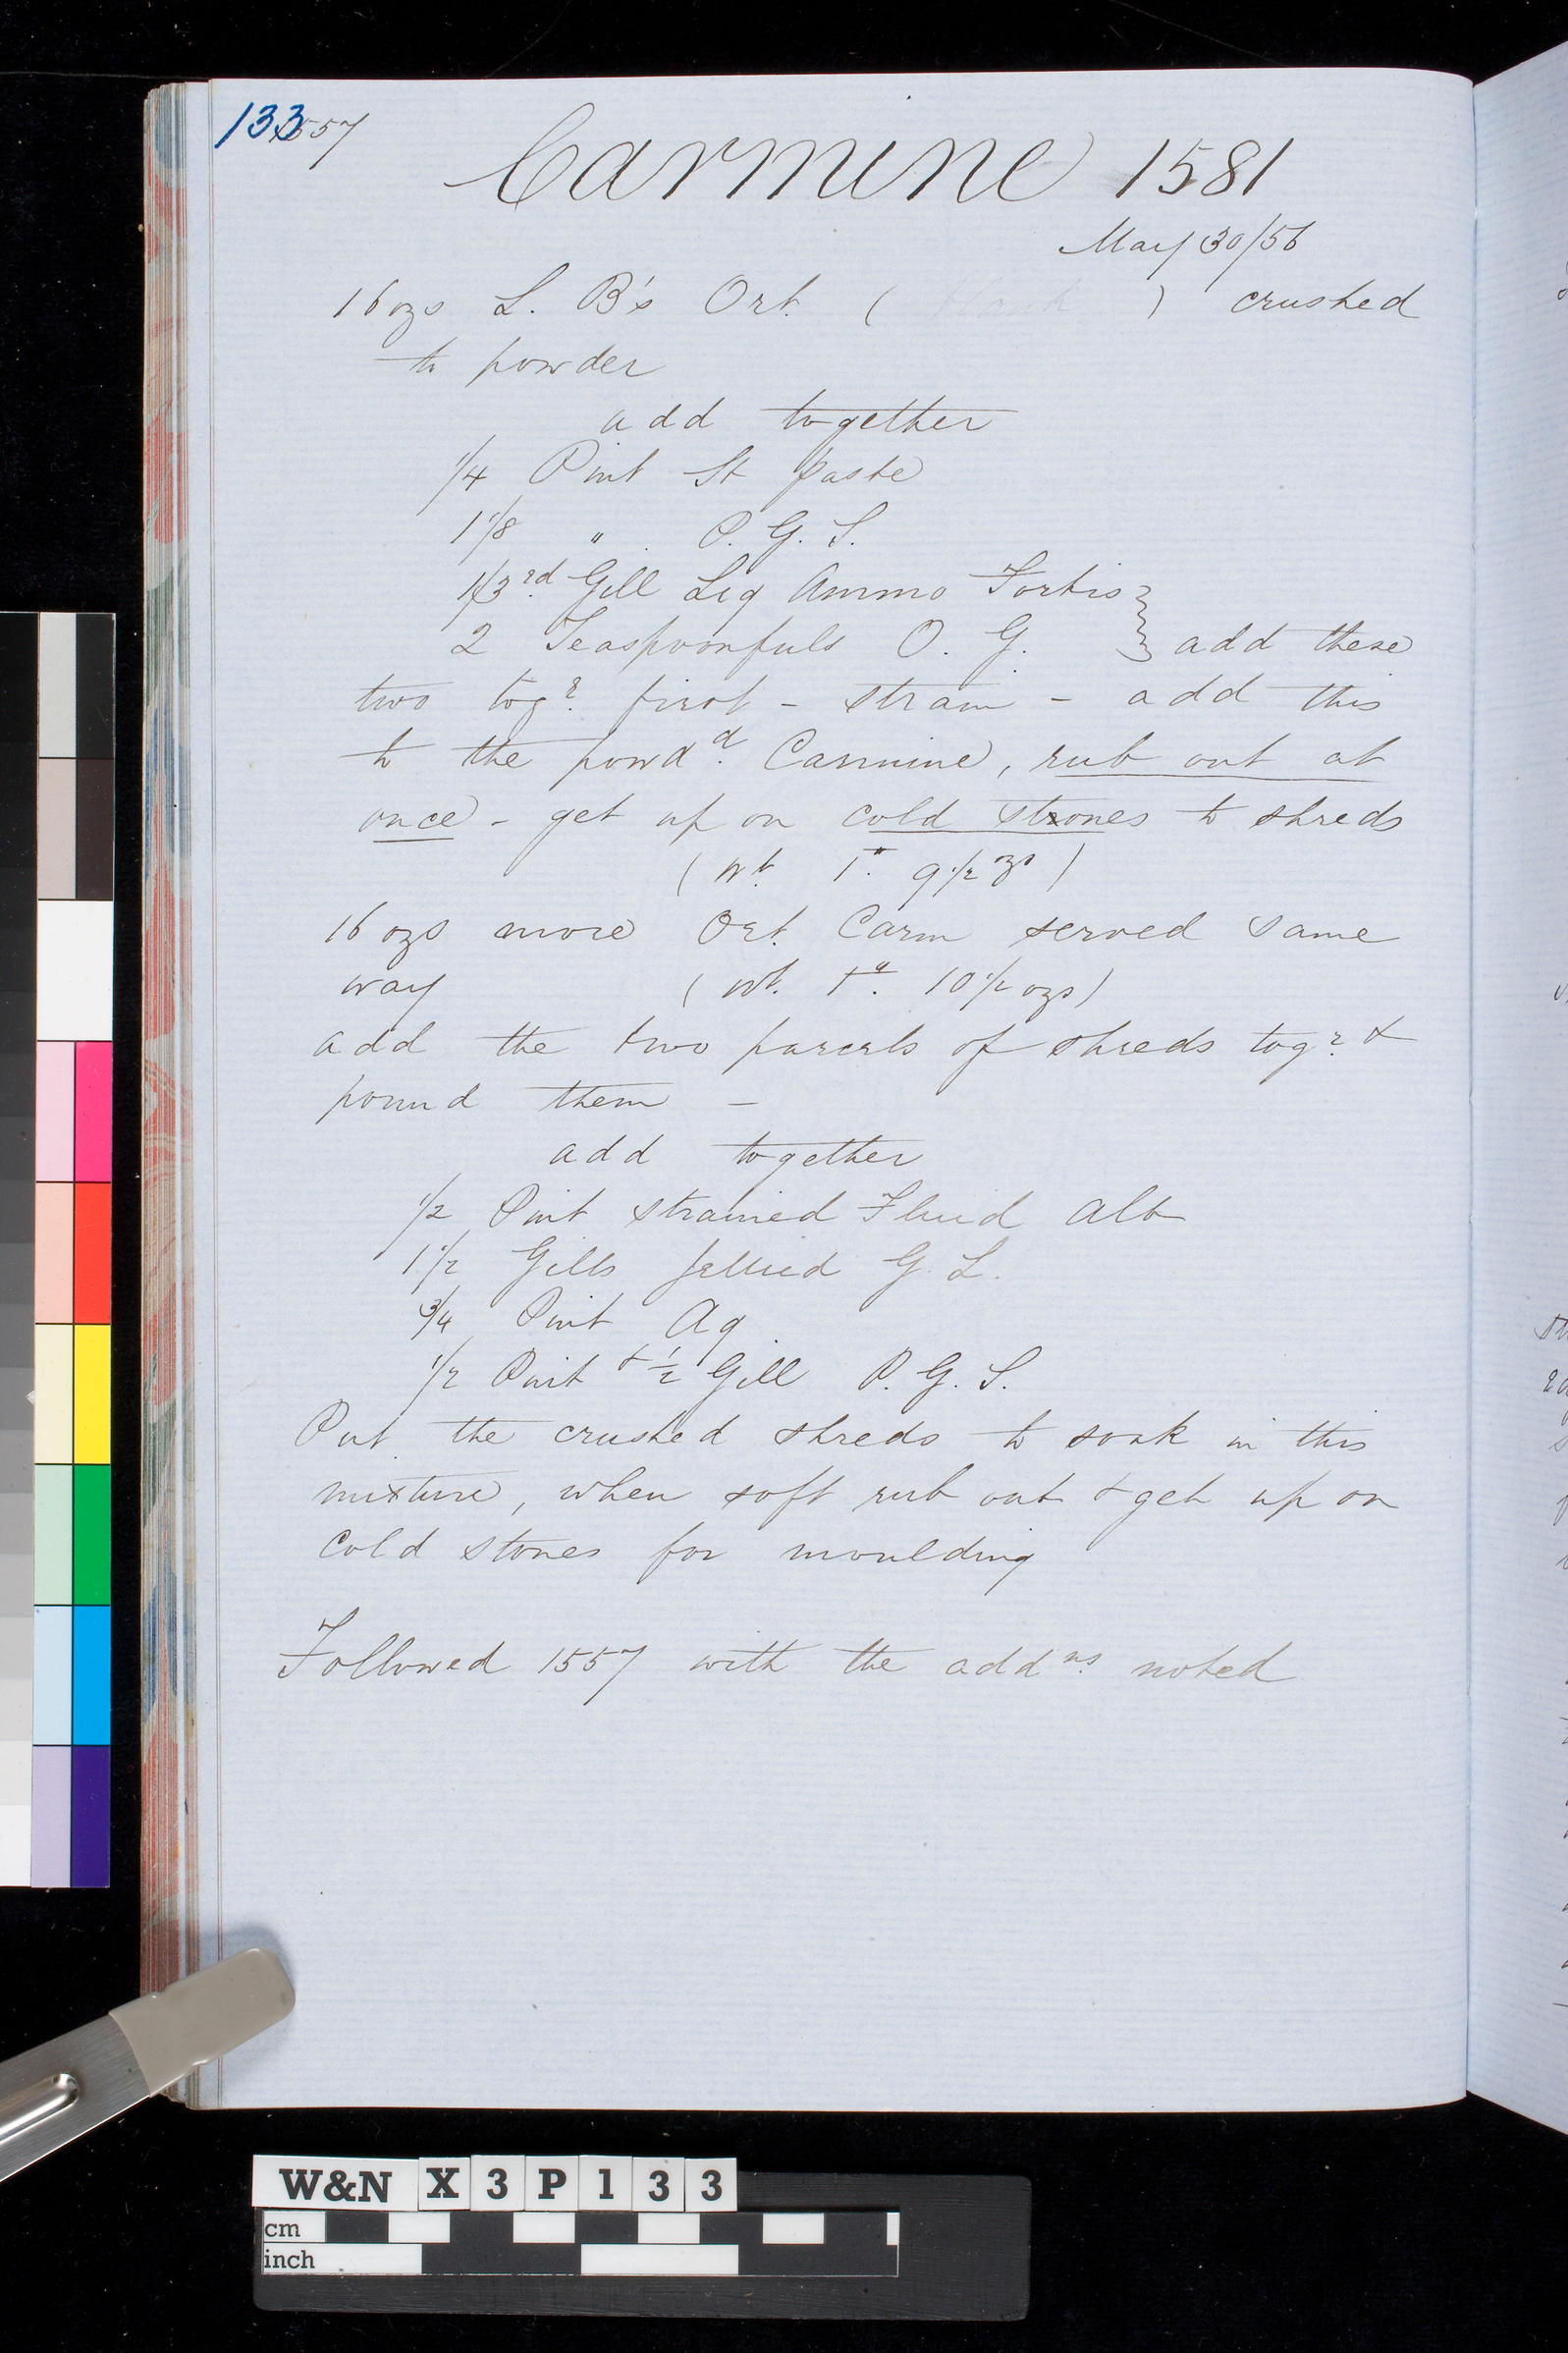 133
1557
Carmine 1581
May 30/56
16 ozs L. B's Ort. ( ) crushed
to powder
add together
1/4 Pint St paste
1 1/8 " P. G. S.
1/3rd Gill Liq Ammo Fortis
2 Teaspoonfuls O. G. } add these
two togr. first - strain - add this
to the powdd. Carmine, rub out at
once - get up on cold stones to shreds
(wt. 1". 9 1/2 ozs)
16 ozs more Ort. Carm served same
way (wt. 1". 10 1/2 ozs)
add the two parcels of shreds togr. &
pound them -
add together
1/2 Pint strained Fluid Alb
1 1/2 Gills Jellied G. L.
3/4 Pint Aq
1/2 Pint & 1/2 Gill P. G. S.
Put the crushed shreds to soak in this
mixture, when soft rub out & get up on
cold stones for moulding
Followed 1557 with the addns. noted
W&N X 3 P 1 3 3
cm
inch